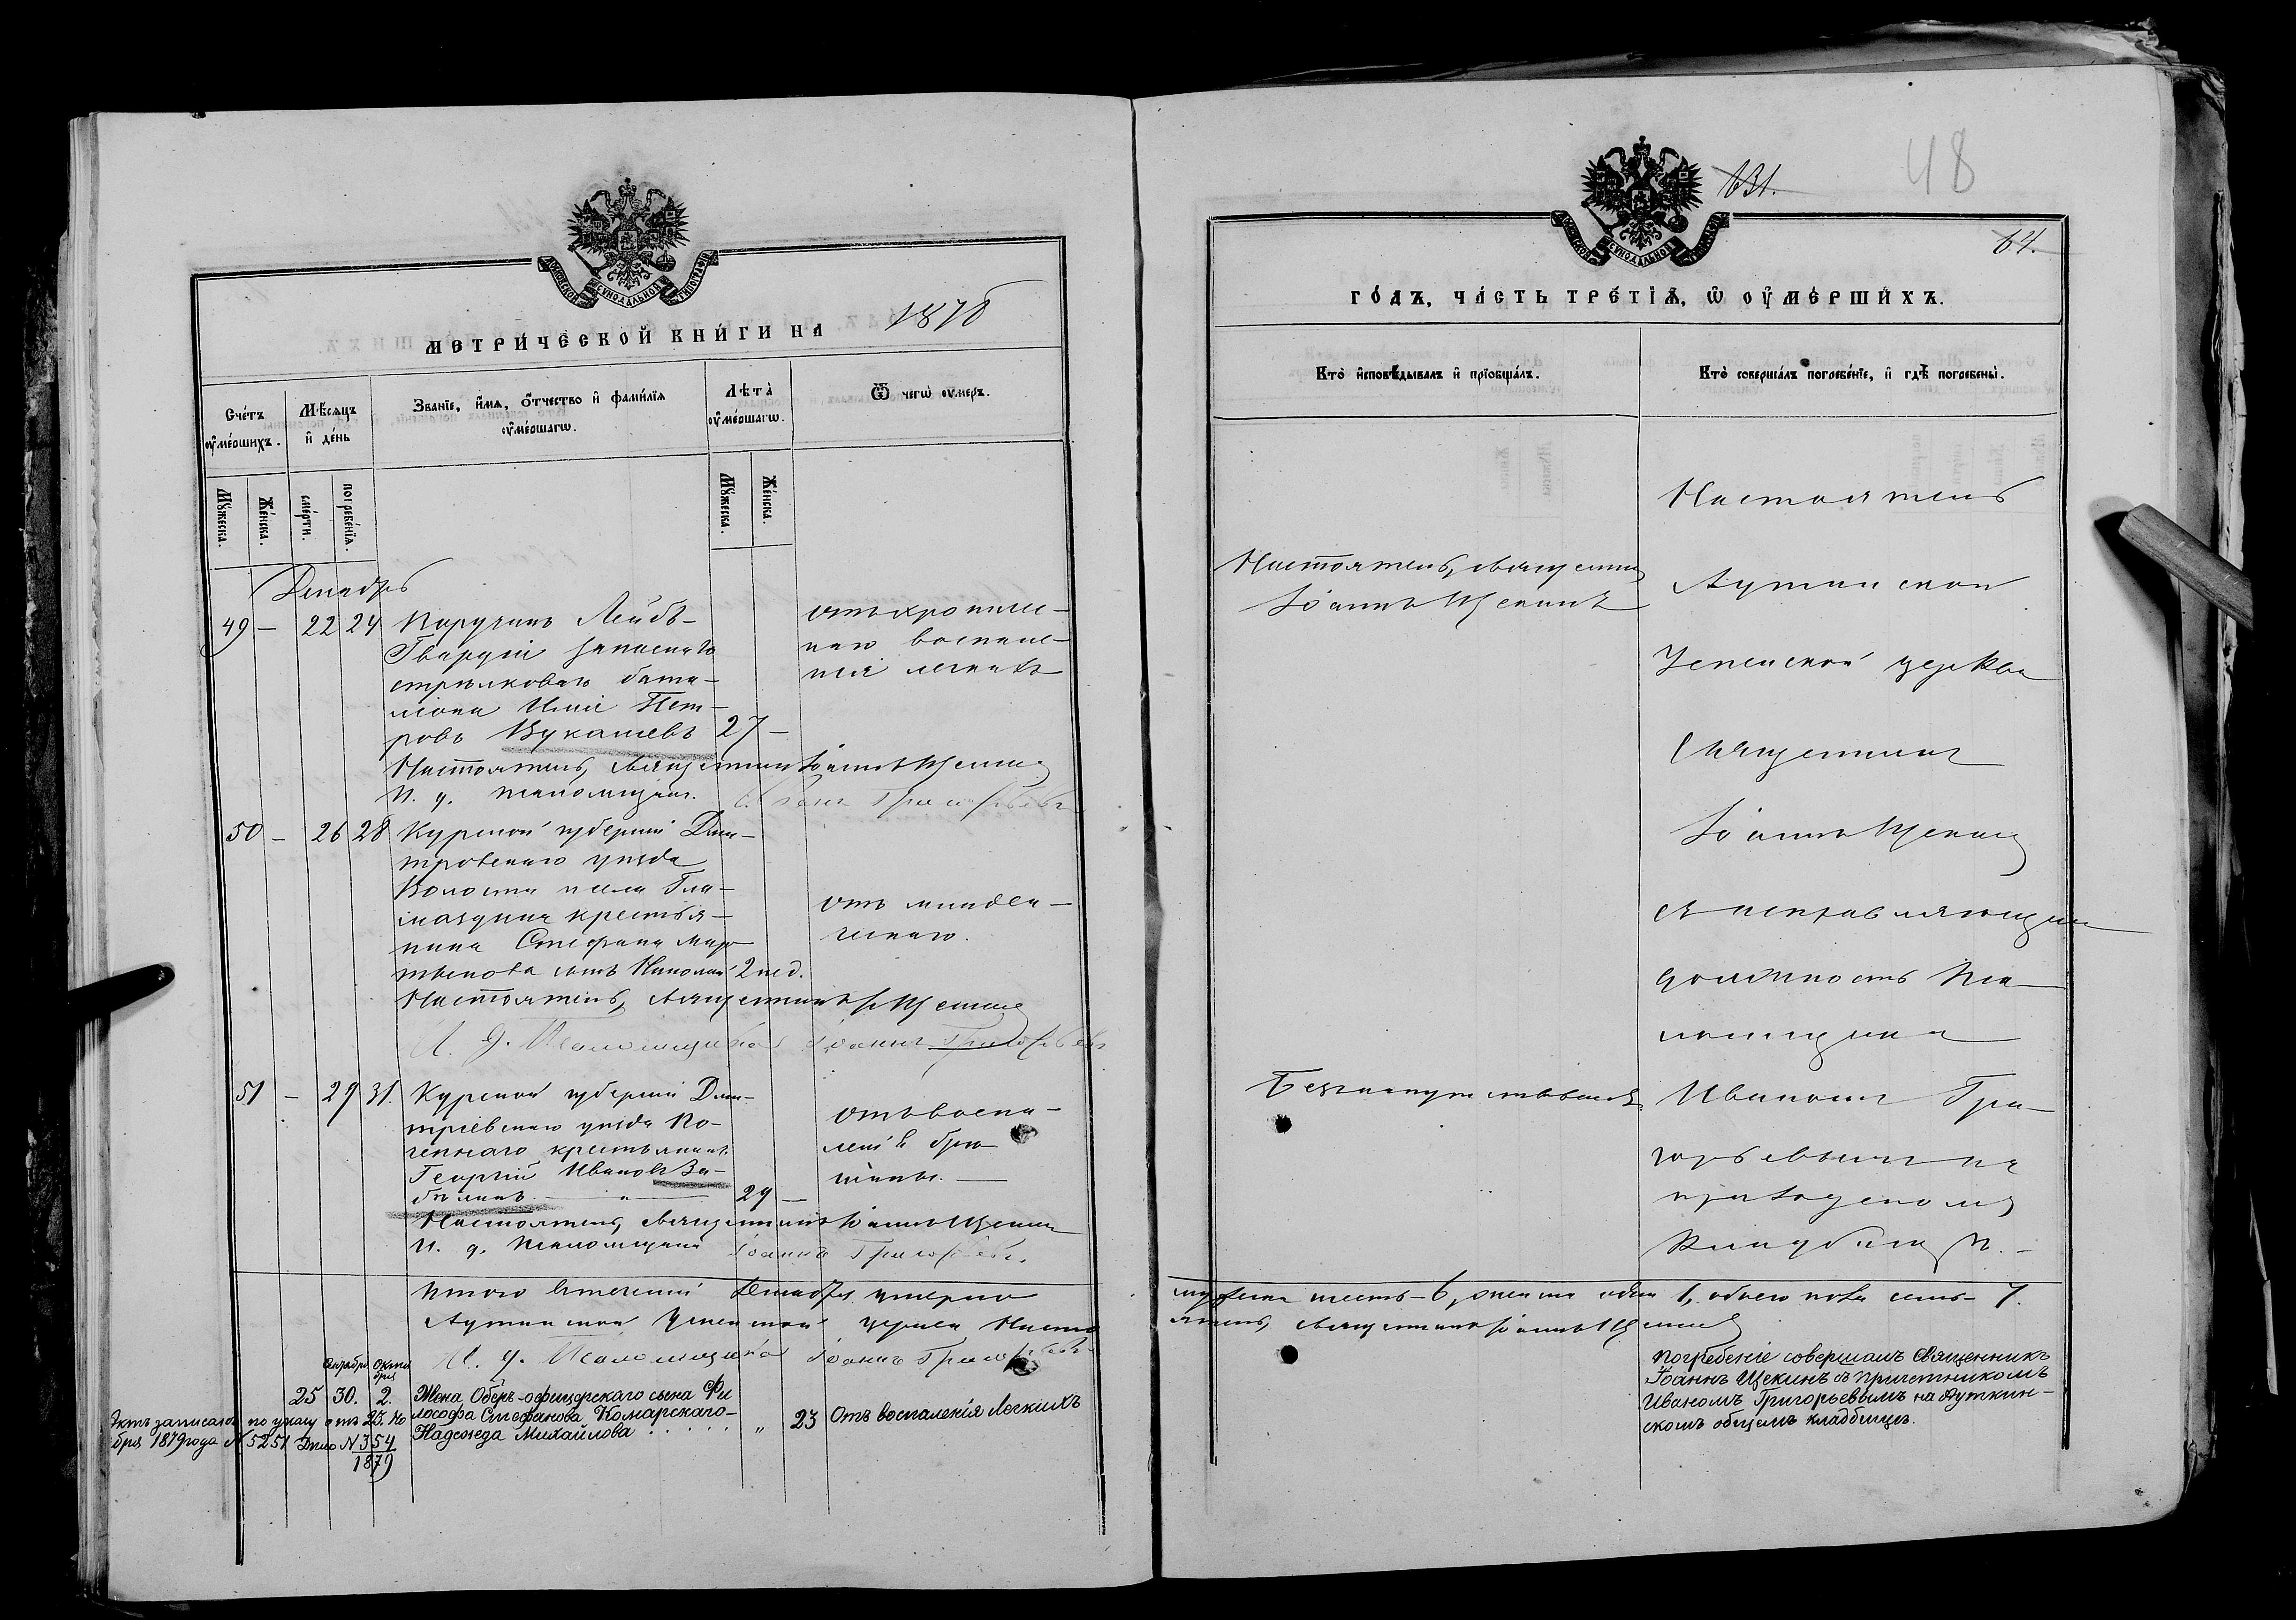 МОСКОВСКОЙ СѴНОДАЛЬНОЙ ТИПОГРАФІИ
МЕТРИ́ЧЕСКОЙ КНИ́ГИ НА 1878
Сче́тъ ᲂу҆ме́ршихъ.
Мѣ́сяцъ и҆ де́нь
Зва́нїе, и҆́мѧ, ѻ҆́тчество и҆ фами́лїѧ ᲂу҆ме́ршагѡ.
Лѣта̀ ᲂу҆ме́ршагѡ.
Ѿ чегѡ̀ ᲂу҆́меръ.
Мꙋ́жеска.
Же́нска.
сме́рти.
погребе́нїѧ.
Мꙋ́жеска.
Же́нска.
Декабрь
49 — 22 24 Поручикъ Лейбъ-
Гвардіи запаснаго
стрѣлковаго бата-
ліона Илія Пет-
ровъ Вукашевъ 27 —
отъ хрониче-
наго воспале-
нія легкихъ
Настоятель, священникъ Іоаннъ Щекинъ
И. д. псаломщика Іоаннъ Григорьевъ
50 — 26 28 Курской губерніи Дми-
тровскаго уѣзда
Волости и села Гла-
маздина крестья-
нина Стефана Мар-
тынова сынъ Николай 2 нед.
отъ младен-
ческаго.
Настоятель, священникъ І. Щекинъ
И. д. Псаломщика Іоаннъ Григорьевъ
51 — 29 31. Курской губерніи Дми-
тріевскаго уѣзда По-
крестьянинъ
Георгій Ивановъ За-
бѣлинъ. — " — 29 —
отъ воспа-
ленія брю-
шины. —
Настоятель, священникъ Іоаннъ Щекинъ
И. д. псаломщика Іоаннъ Григорьевъ.
Итого въ теченіи Декабря умерло
Аутинской Успенской церкви Насто
И. д. Псаломщика Іоаннъ Григорьевъ
Сентября Октя
бря
25 30. 2. Жена Оберъ-офицерскаго сына Фи
лософа Стефанова Комарскаго-
Надежда Михайлова . . . . . . " 23 Отъ воспаленія Легкихъ
Актъ записанъ по указу отъ 25. Но
бря 1879 года N 5251 Дѣло N 354
1879
131.
48
64.
МОСКОВСКОЙ СѴНОДАЛЬНОЙ ТИПОГРАФІИ
ГО́ДЪ, ЧА́СТЬ ТРЕ́ТЇѦ, Ѡ҆ ОУ҆МЕ́РШИХЪ.
Кто̀ и҆сповѣ́дывалъ и҆ прїѡбща́лъ.
Кто̀ соверша́лъ погребе́нїе, и҆ гдѣ̀ погребены̀.
Настоятель, священникъ
Іоаннъ Щекинъ
Настоятель
Аутинской
Успенской церкви
Священникъ
Іоаннъ Щекинъ
съ исправляющимъ
должность Пса-
ломщика
Иваномъ Гри-
горьевымъ на
приходскомъ
Кладбищѣ. —
мужеска шесть - 6, женска одна 1, обоего пола семь - 7.
ятель, священникъ Іоаннъ Щекинъ
Погребеніе совершалъ Священникъ
Іоаннъ Щекинъ съ Причетникомъ
Иваномъ Григорьевымъ на Ауткин-
скомъ общемъ кладбищѣ.